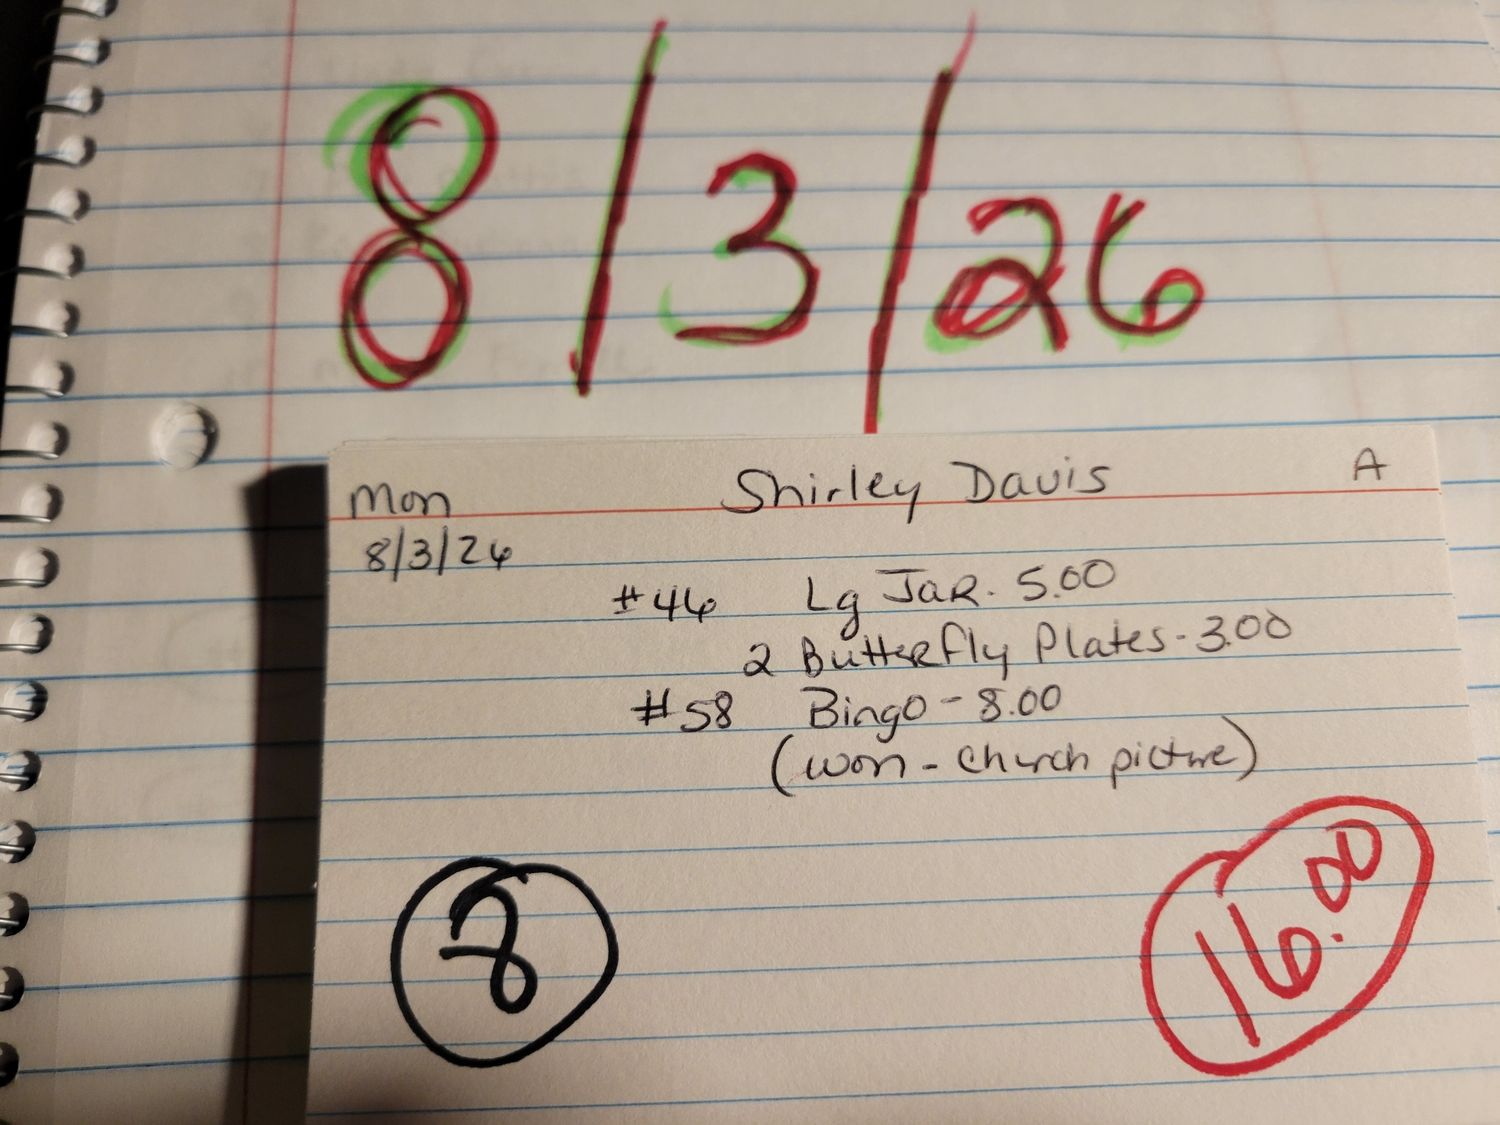 8/3/26
Mon Shirley Davis A
8/3/26
#46 Lg Jar. 5.00
2 Butterfly Plates - 3.00
#58 Bingo - 8.00
(won - church picture)
8
16.00